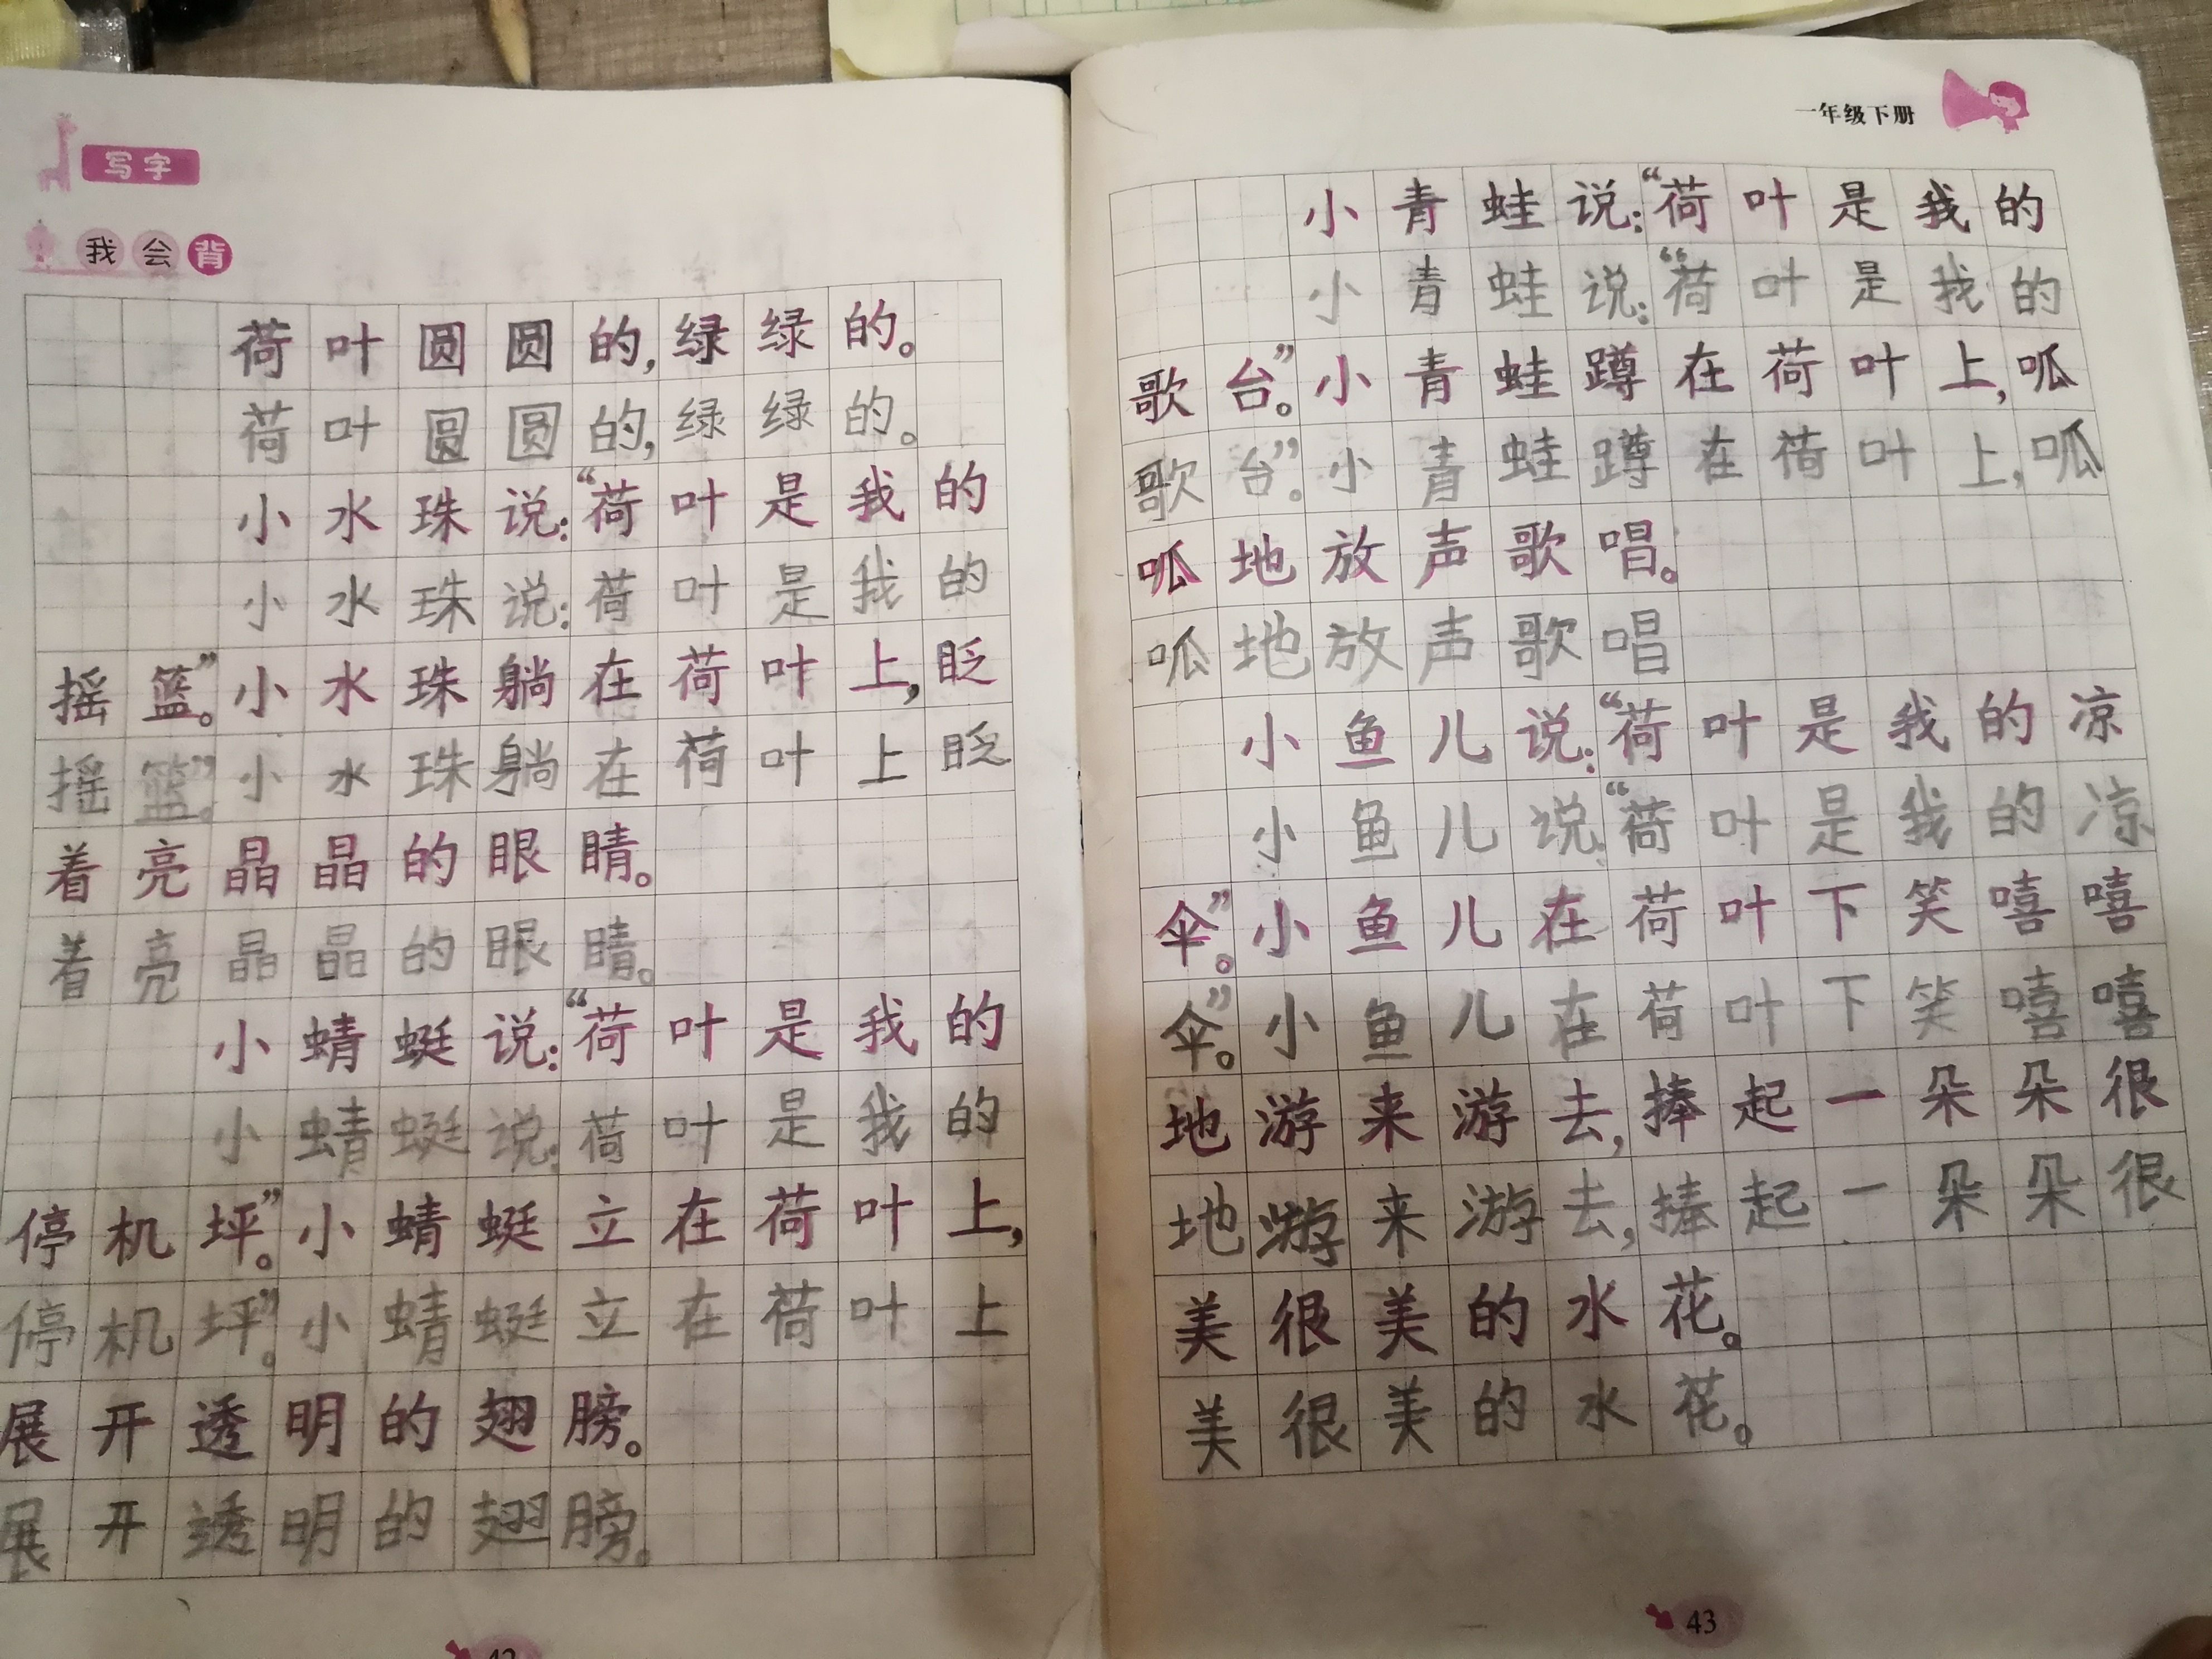 写字
我会背
荷叶圆圆的,绿绿的。
荷叶圆圆的,绿绿的。
小水珠说:“荷叶是我的
小水珠说:荷叶是我的
摇篮。”小水珠躺在荷叶上,眨
摇篮。”小水珠躺在荷叶上眨
着亮晶晶的眼睛。
着亮晶晶的眼睛。
小蜻蜓说:“荷叶是我的
小蜻蜓说:荷叶是我的
停机坪。”小蜻蜓立在荷叶上,
停机坪。”小蜻蜓立在荷叶上
展开透明的翅膀。
展开透明的翅膀。
一年级下册
小青蛙说:“荷叶是我的
小青蛙说:“荷叶是我的
歌台。”小青蛙蹲在荷叶上,呱
歌台。”小青蛙蹲在荷叶上,呱
呱地放声歌唱。
呱地放声歌唱
小鱼儿说:“荷叶是我的凉
小鱼儿说:“荷叶是我的凉
伞。”小鱼儿在荷叶下笑嘻嘻
伞。”小鱼儿在荷叶下笑嘻嘻
地游来游去,捧起一朵朵很
地游来游去,捧起一朵朵很
美很美的水花。
美很美的水花。
43